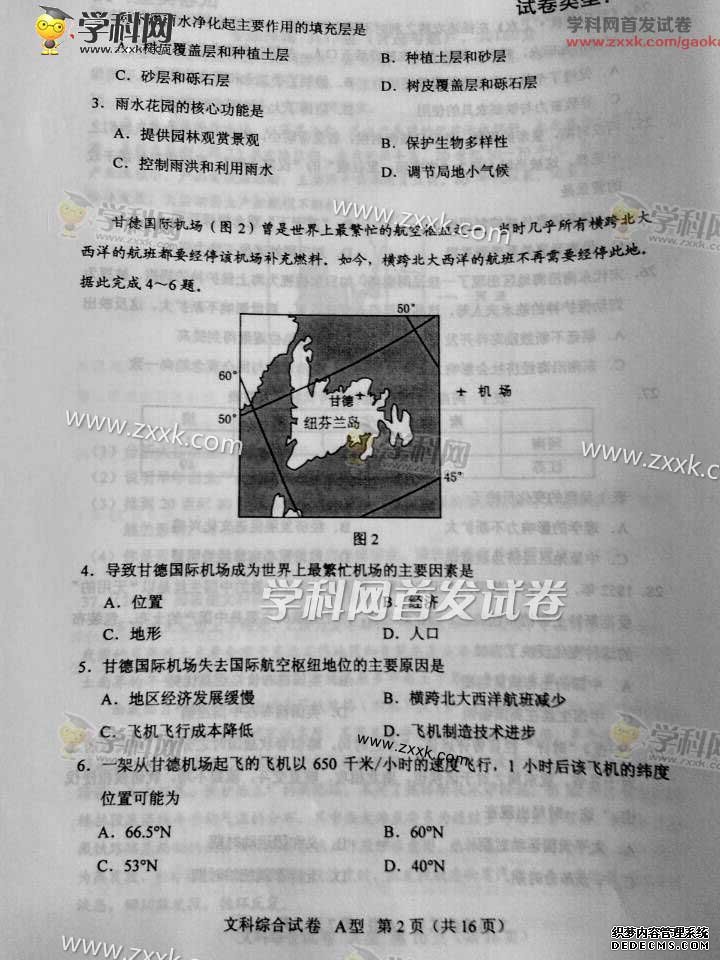 学科网
www.zxxk.com
试卷类型：
www.zxxk.com/gaoka
雨水净化起主要作用的填充层是
A．树皮覆盖层和种植土层 B．种植土层和砂层
C．砂层和砾石层 D．树皮覆盖层和砾石层
3．雨水花园的核心功能是
A．提供园林观赏景观 B．保护生物多样性
C．控制雨洪和利用雨水 D．调节局地小气候
学科网
www.zxxk.com
学科网
甘德国际机场（图2）曾是世界上最繁忙的航空枢纽之一，当时几乎所有横跨北大
西洋的航班都要经停该机场补充燃料．如今，横跨北大西洋的航班不再需要经停此地。
据此完成4～6题．
50°
60°
甘德
机场
50°
纽芬兰岛
www.zxxk.com
学科网
www.zxxk.com
45°
图2
4．导致甘德国际机场成为世界上最繁忙机场的主要因素是
A．位置 B．经济
学科网首发试卷
C．地形 D．人口
5．甘德国际机场失去国际航空枢纽地位的主要原因是
A．地区经济发展缓慢 B．横跨北大西洋航班减少
C．飞机飞行成本降低 D．飞机制造技术进步
学科网
www.zxxk.com
学科网
6．一架从甘德机场起飞的飞机以 650 千米/小时的速度飞行，1 小时后该飞机的纬度
位置可能为
A．66.5°N B．60°N
C．53°N D．40°N
www.zxxk.com
学科网
www.zxxk.com
文科综合试卷 A型 第2页（共16页）
织梦内容管理系统
DEDECMS.COM